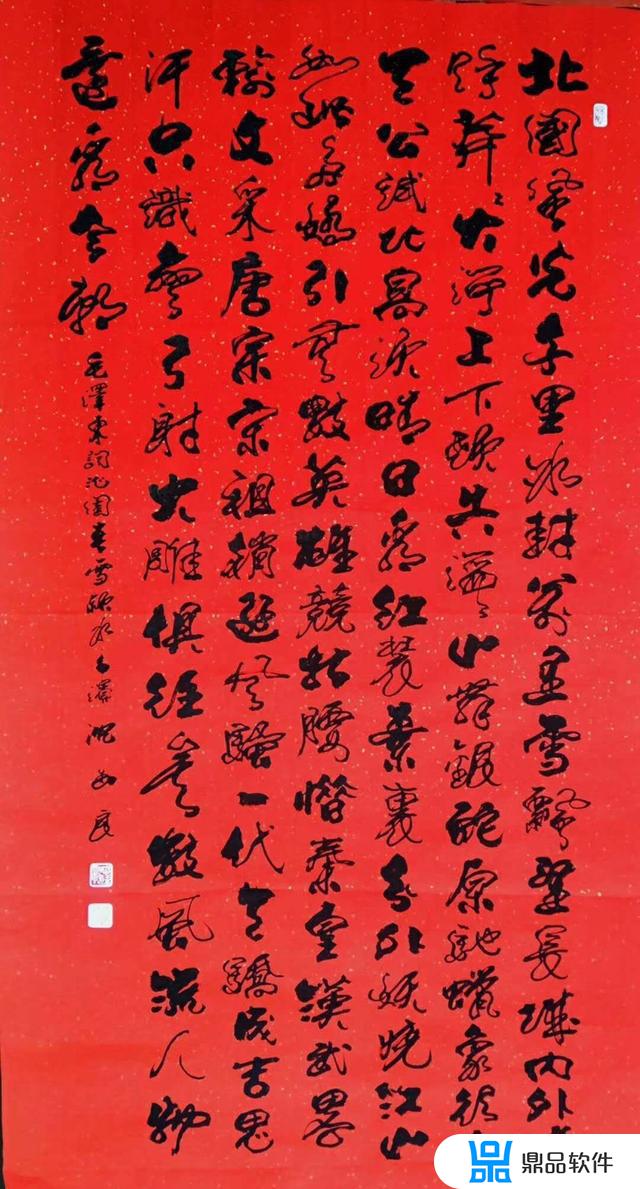 北國風光千里冰封萬里雪飄望長城內外
餘莽〻大河上下頓失滔〻山舞銀蛇原馳蠟象欲
天公試比高須晴日看紅裝素裹分外妖嬈江山
如此多嬌引無數英雄競折腰惜秦皇漢武略
輸文采唐宗宋祖稍遜風騷一代天驕成吉思
汗只識彎弓射大雕俱往矣數風流人物
還看今朝
毛澤東詞沁園春雪
鼎品软件